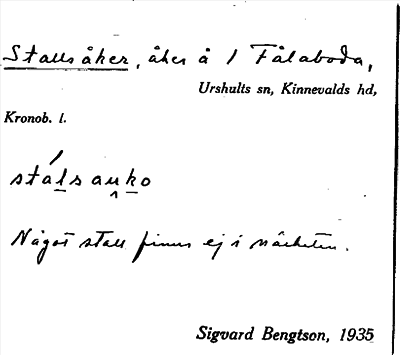 Stallsåker, åker å 1 Fålaboda,
Urshults sn, Kinnevalds hd,
Kronob. l.
stálsauko
Något stall finns ej i närheten.
Sigvard Bengtson, 1935